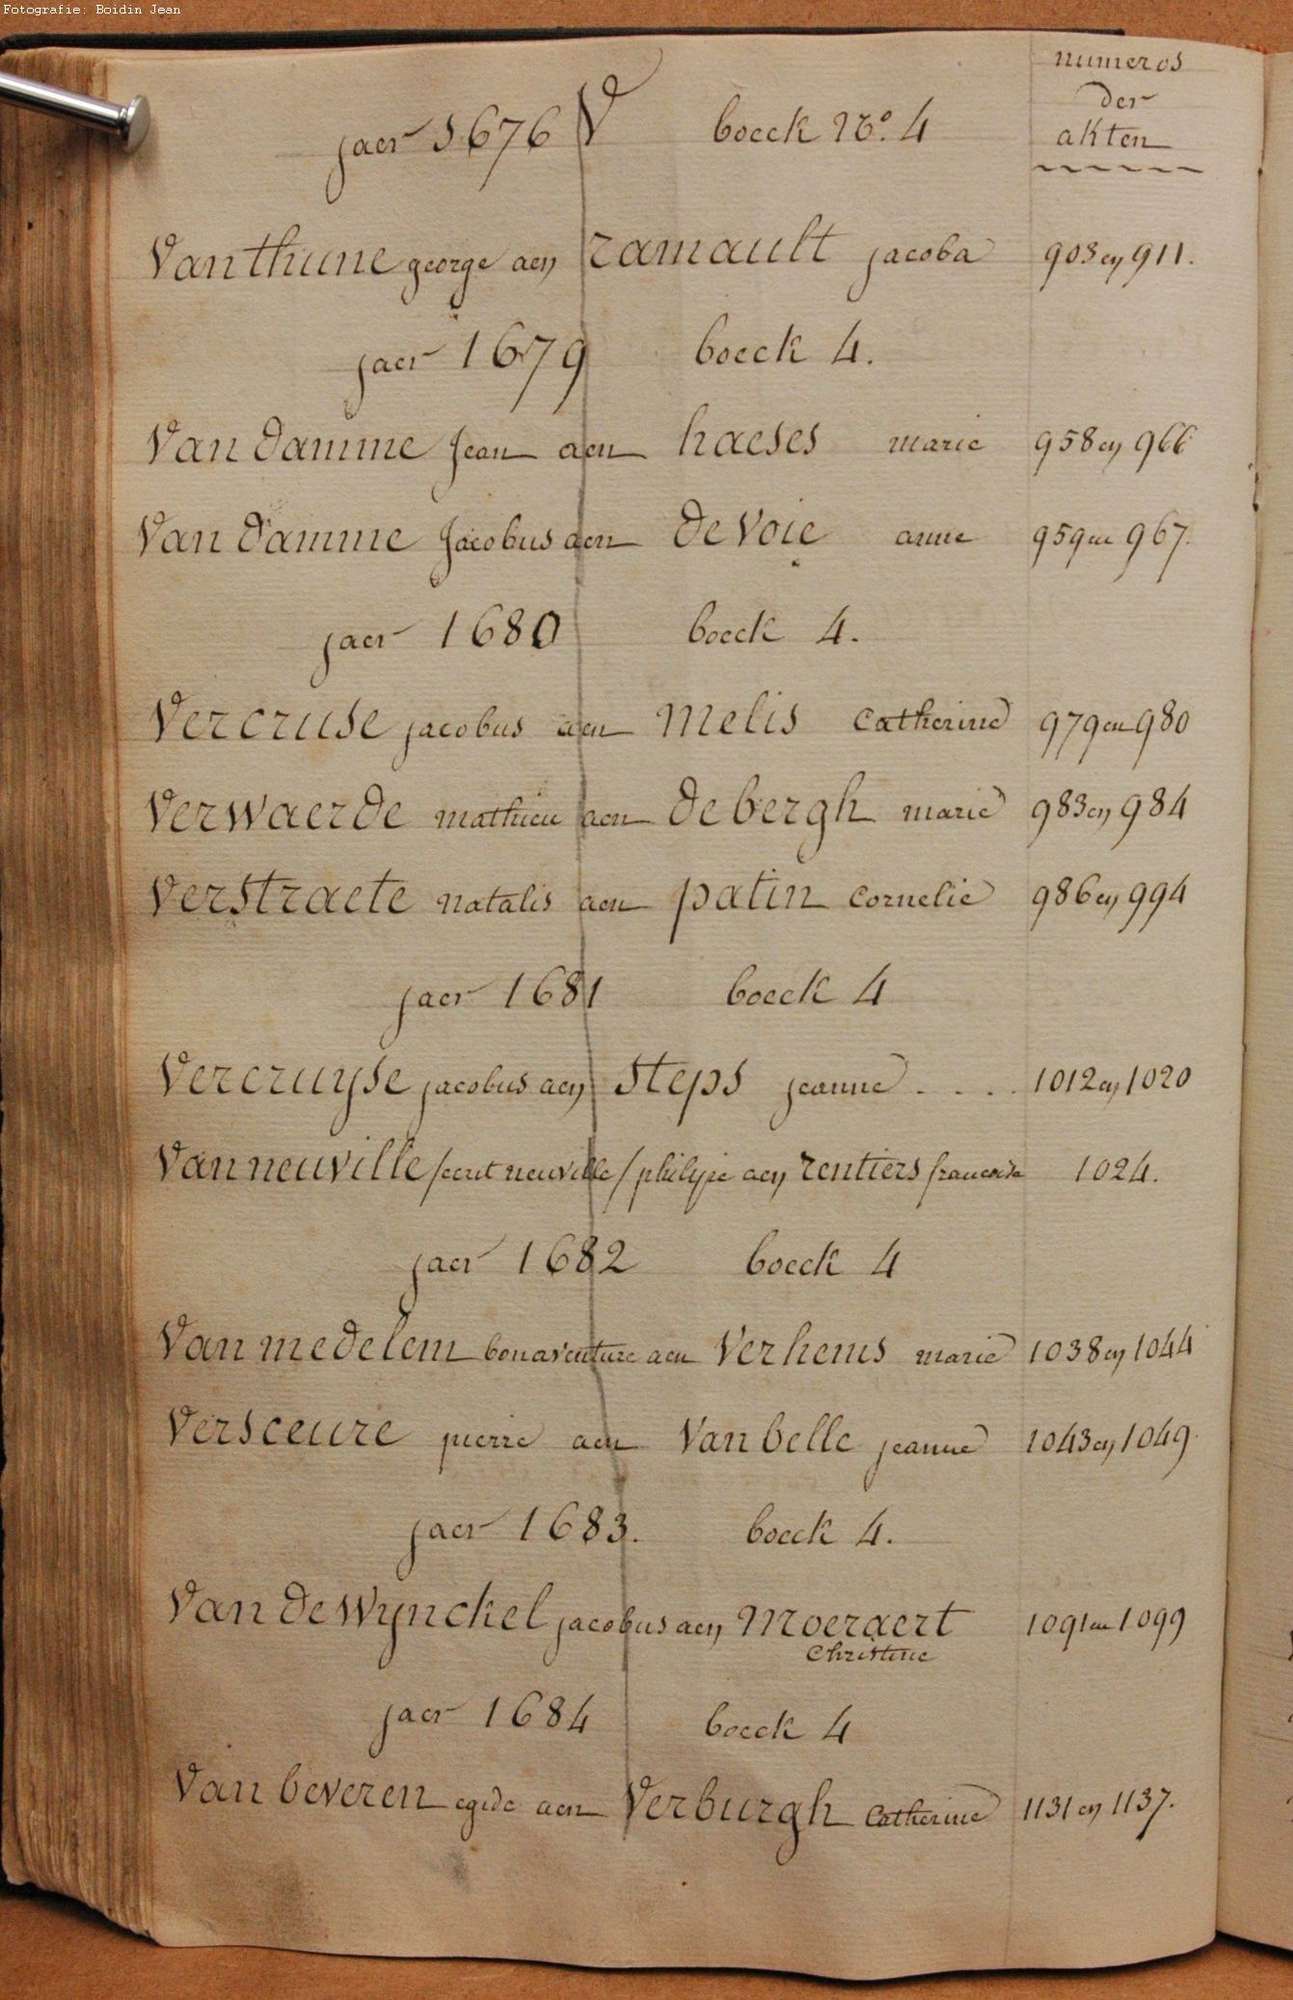 Fotografie: Boidin Jean
numeros
der
akten
jaer 1676 V boeck No. 4
Vanthune george aen ramault jacoba 903 en 911.
jaer 1679 boeck 4.
Van damme Jean aen haeses marie 958 en 966
Van damme Jacobus aen de Voie anne 959 en 967.
jaer 1680 boeck 4.
Vercruse jacobus aen Melis Catherine 979 en 980
Verwaerde mathieu aen de bergh marie 983 en 984
Verstraete natalis aen patin Cornelie 986 en 994
jaer 1681 boeck 4
Vercruyse jacobus aen Steps jeanne .... 1012 en 1020
Van neuville /ecrit neuville/ philipe aen rentiers francoise 1024.
jaer 1682 boeck 4
Van medelem bonaventure aen Verhems marie 1038 en 1044
Versceure pierre aen Van belle jeanne 1043 en 1049.
jaer 1683. boeck 4.
Van de Wynckel jacobus aen Moeraert 1091 en 1099
Christine
jaer 1684 boeck 4
Van beveren egide aen Verburgh Catherine 1131 en 1137.